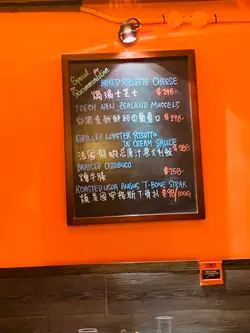 Special
Recommendation
BAKED RACLETTE CHEESE
焗瑞士芝士 $148
FRESH NEW ZEALAND MUSSELS
$198
GRILLED LOBSTER RISOTTO
IN CREAM SAUCE
法國龍蝦忌廉汁意大利飯 $388
BRAISED OSSOBUCO
燴牛膝 $258
ROASTED USDA ANGUS T-BONE STEAK
燒美國安格斯T骨扒 $98/100G